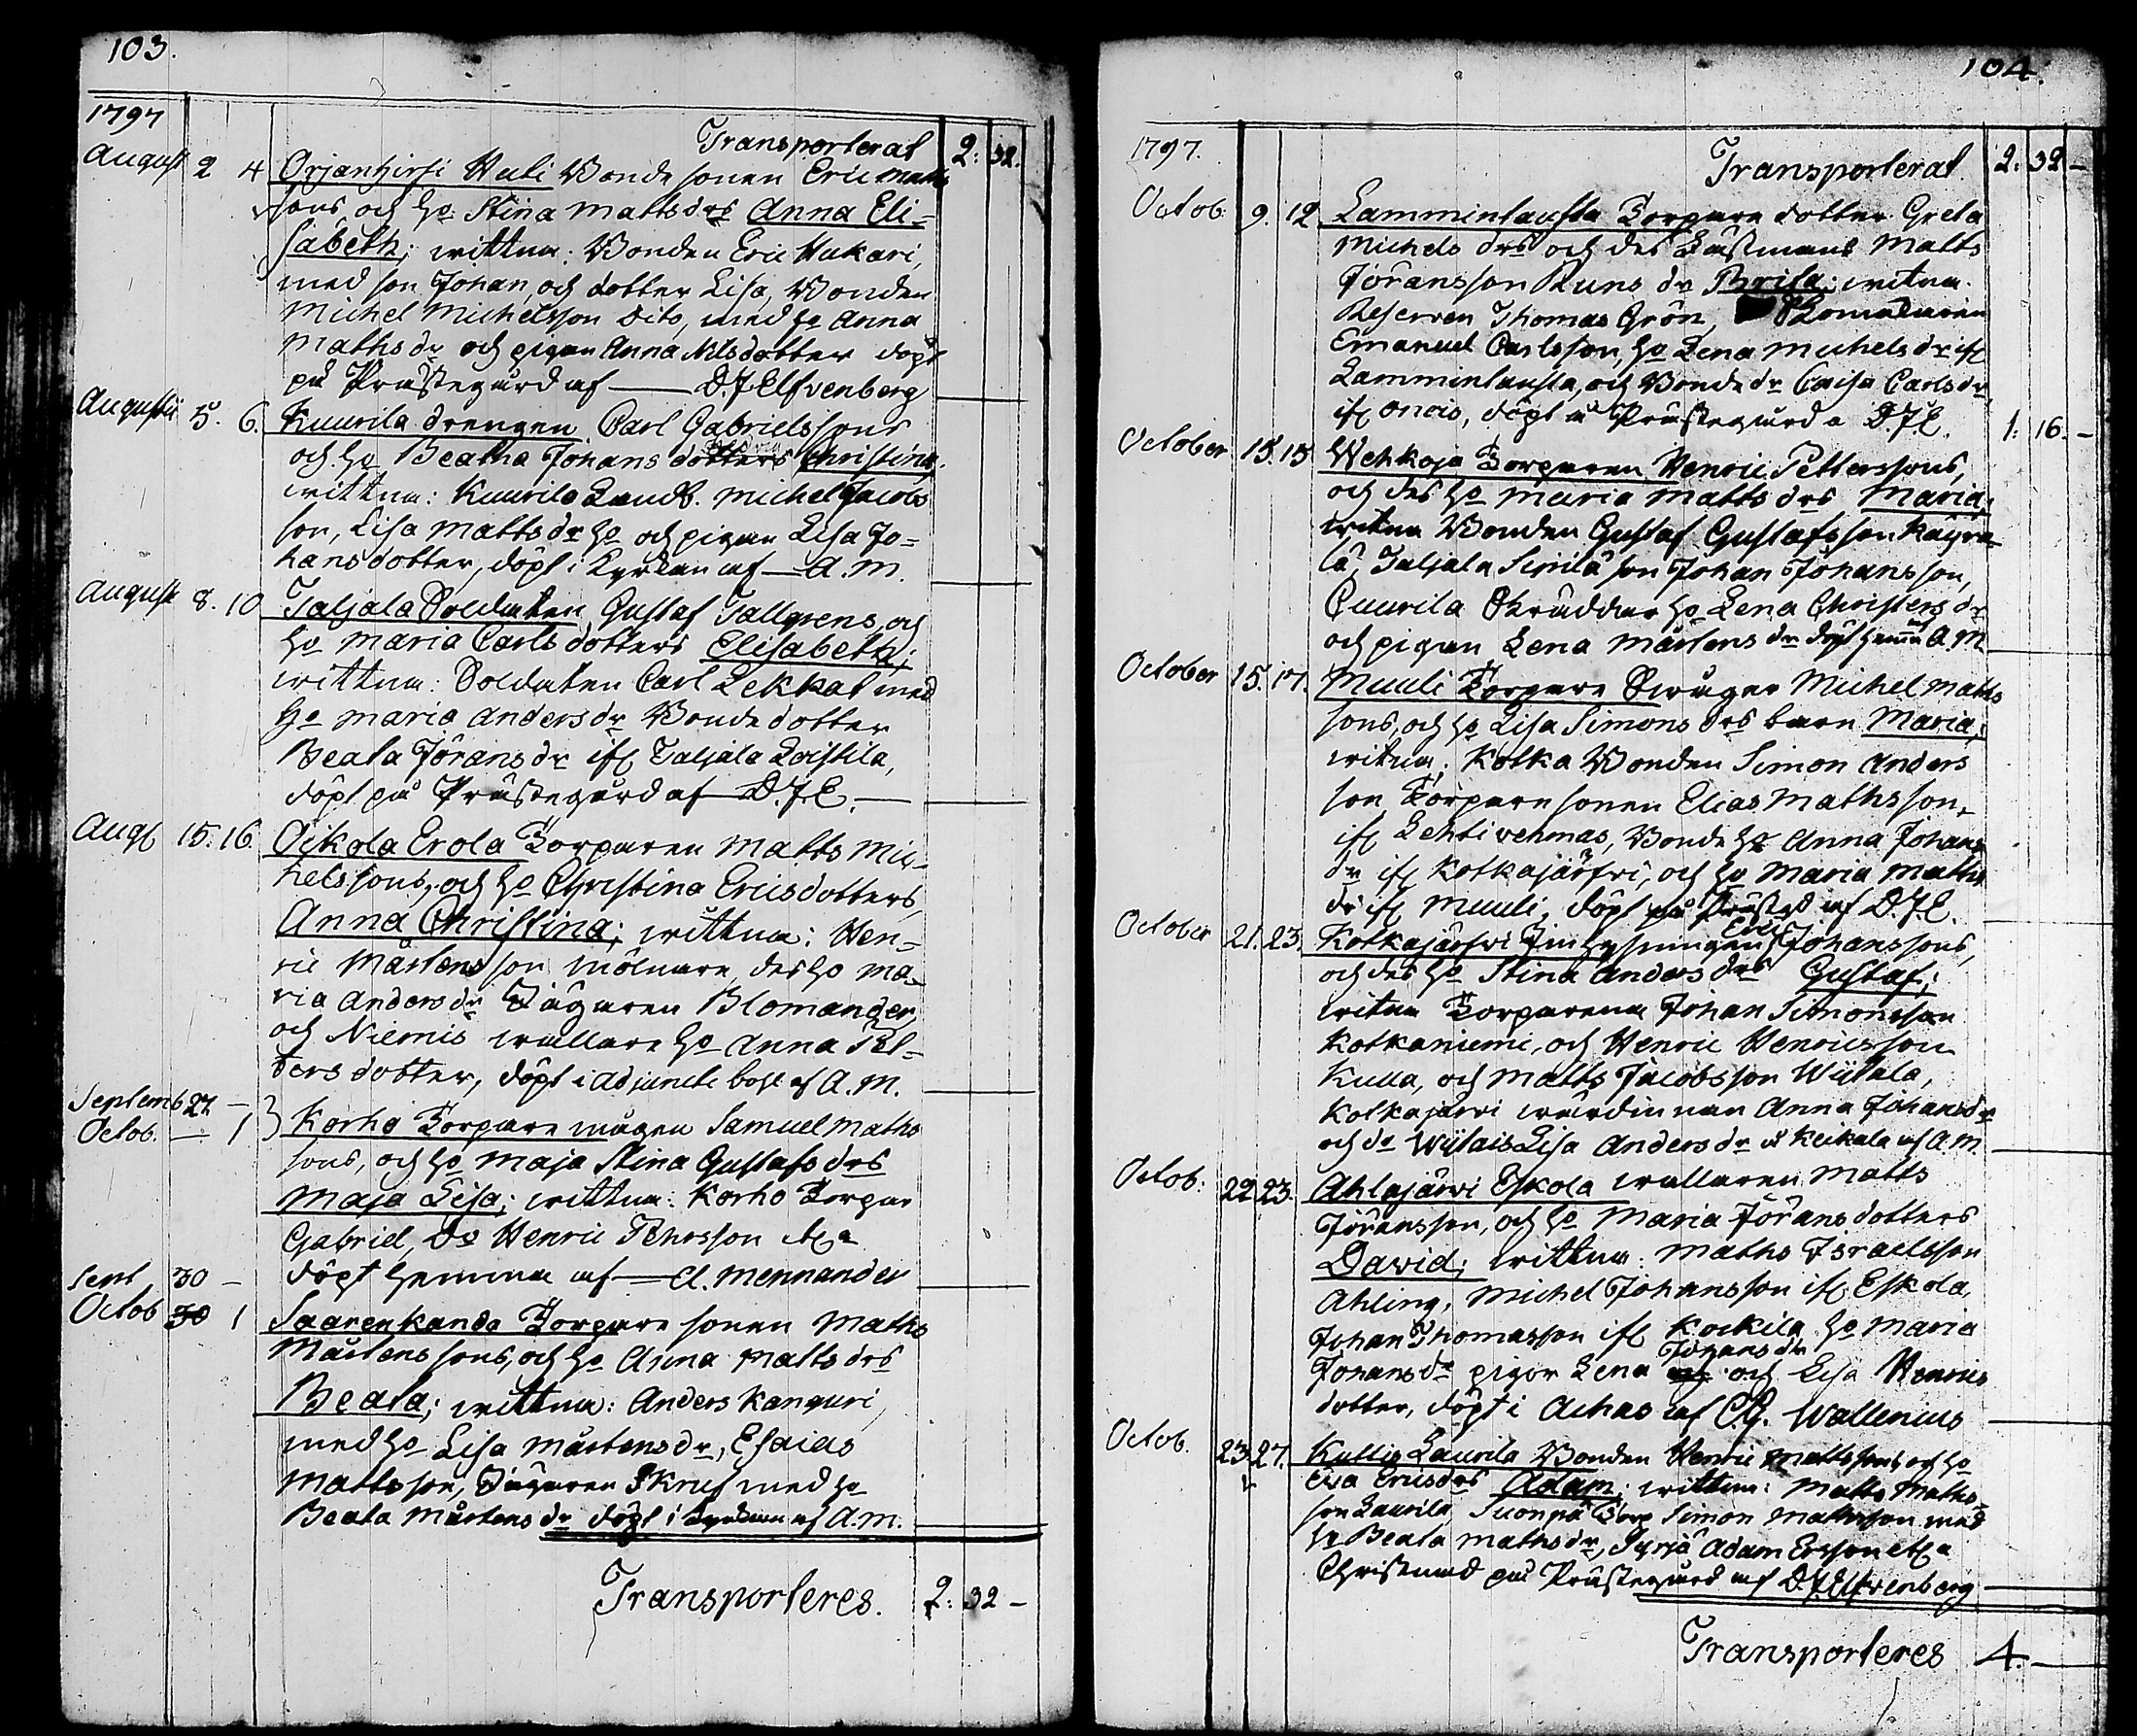 103.
1797
Transporterat 2: 32.
August 2 4 Orjanhirsi Huli Bonde sonen Eric Matts
sons, och ho Stina Mattsdrs Anna Eli=
sabeth; wittna: Bonden Eric Hukari,
med son Johan, och dotter Lisa, Bonden
Michel Michelsson Dito, med ho Anna
Mathsdr och pigan Anna Nilsdotter döpt
på Prästegård af — D.J. Elfvenberg
Augusti 5. 6. Kuurila drengen Carl Gabrielssons
och ho Beatha Johans dotters Christina,
wittna: Kuurila Landb. Michel Jacobs
son, Lisa Mattsdr ho och pigan Lisa Jo=
hansdotter, döpt i Kyrkan af — A.M.
August 8. 10 Taljala Soldaten Gustaf Tallgrens, och
ho Maria Carlsdotters Elisabeth;
wittna: Soldaten Carl Lekkat med
ho Maria Andersdr Bondedotter
Beata Jöransdr ifr Taljala Loistila,
döpt på Prästegård af D.J.E. —
Augt 15. 16. Oikola Erola Torparen Matts Mic=
helssons, och ho Christina Ericsdotters
Anna Christina; wittna: Hen=
ric Mårtensson mölnare, des ho Ma=
ria Andersdr Jägaren Blomander,
och Niemis wallare ho Anna Pet=
tersdotter, döpt i Adjuncts bost. af A.M.
Septemb 27 —
Octob. — 1 } Korho Torpare mågen Samuel Maths
sons, och ho Maja Stina Gustafsdrs
Maja Lisa; wittna: Korho Torpar
Gabriel, Do Henric Pehrsson etc a
döpt hemma af — A. Mennander
Sept 30 —
Octob 30 1 Saarenkanda Torpare sonen Maths
Mårtenssons, och ho Anna Mattsdrs
Beata; wittna: Anders Kanguri,
med ho Lisa Mårtensdr, Esaias
Mattsson, Jägaren Skruf med ho
Beata Mårtensdr döpt i Kyrkan af A.M.
Transporteres. 2: 32 —
104.
1797.
Transporterat. 2: 32 —
Octob 9. 12 Lammintausta Torpare dotter Greta
Michelsdrs och des Fästmans Matts
Jöransson Runs dr Brita; witna.
Reserven Thomas Grön,
Emanuel Carlsson, ho Lena Michelsdr ifr
Lammintausta, och Bondedr Caisa Carlsdr
ifr Oncis, döpt å Prästegård a D.J.E. 1: 16. —
October 15. 15 Wehkoja Torparen Henric Petterssons,
och des ho Maria Mattsdrs Maria;
witna Bonden Gustaf Gustafsson Käyra=
lä, Taljala Sipilä son Johan Johansson,
Cuurila Skräddar ho Lena Christersdr
och pigan Lena Mårtensdr döpt hemma af A.M
October 15. 17. Muuli Torpare Swåger Michel Maths
sons, och ho Lisa Simonsdrs barn Maria;
witna; Kotka Bonden Simon Anders
son Torparesonen Elias Mathsson,
ifr Lehtivehmas, Bonde ho Anna Johans
dr ifr Kotkajärfvi, och ho Maria Maths
dr ifr Muuli, döpt på Prästgd af D.J.E.
October 21. 23. Kotkajärfvi Inhysningen Eric Johanssons,
och des ho Stina Andersdrs Gustaf;
witna Torparena Johan Simonsson
Kotkaniemi, och Henric Henricsson
Kulla, och Matts Jacobsson Wiitala,
Kotkajärwi wärdinnan Anna Johansdr
och do Wiitais Lisa Andersdr å Keikala af A.M.
Octob: 22 23. Ahlajärwi Eskola wallaren Matts
Jöransson, och ho Maria Jöransdotters
David; wittna: Maths Israelsson
Ahling, Michel Johansson ifr Eskola,
Johan Thomasson ifr Kockila, ho Maria
Johansdr pigor Lena Johansdr och Lisa Henrics
dotter, döpt i Achas af C.G. Wallenius
Octob. 23. 27. Kullis Laurila Bonden Henric Mattssons och ho
Ewa Ericsdrs Adam; wittna: Matts Maths=
son Laurila, Suonpä Torp Simon Mathsson med
ho Beata Mathsdr, Jyrjä Adam Ersson etc a
Christnad på Prästegård af D.J. Elfvenberg
Transporteres 4. —